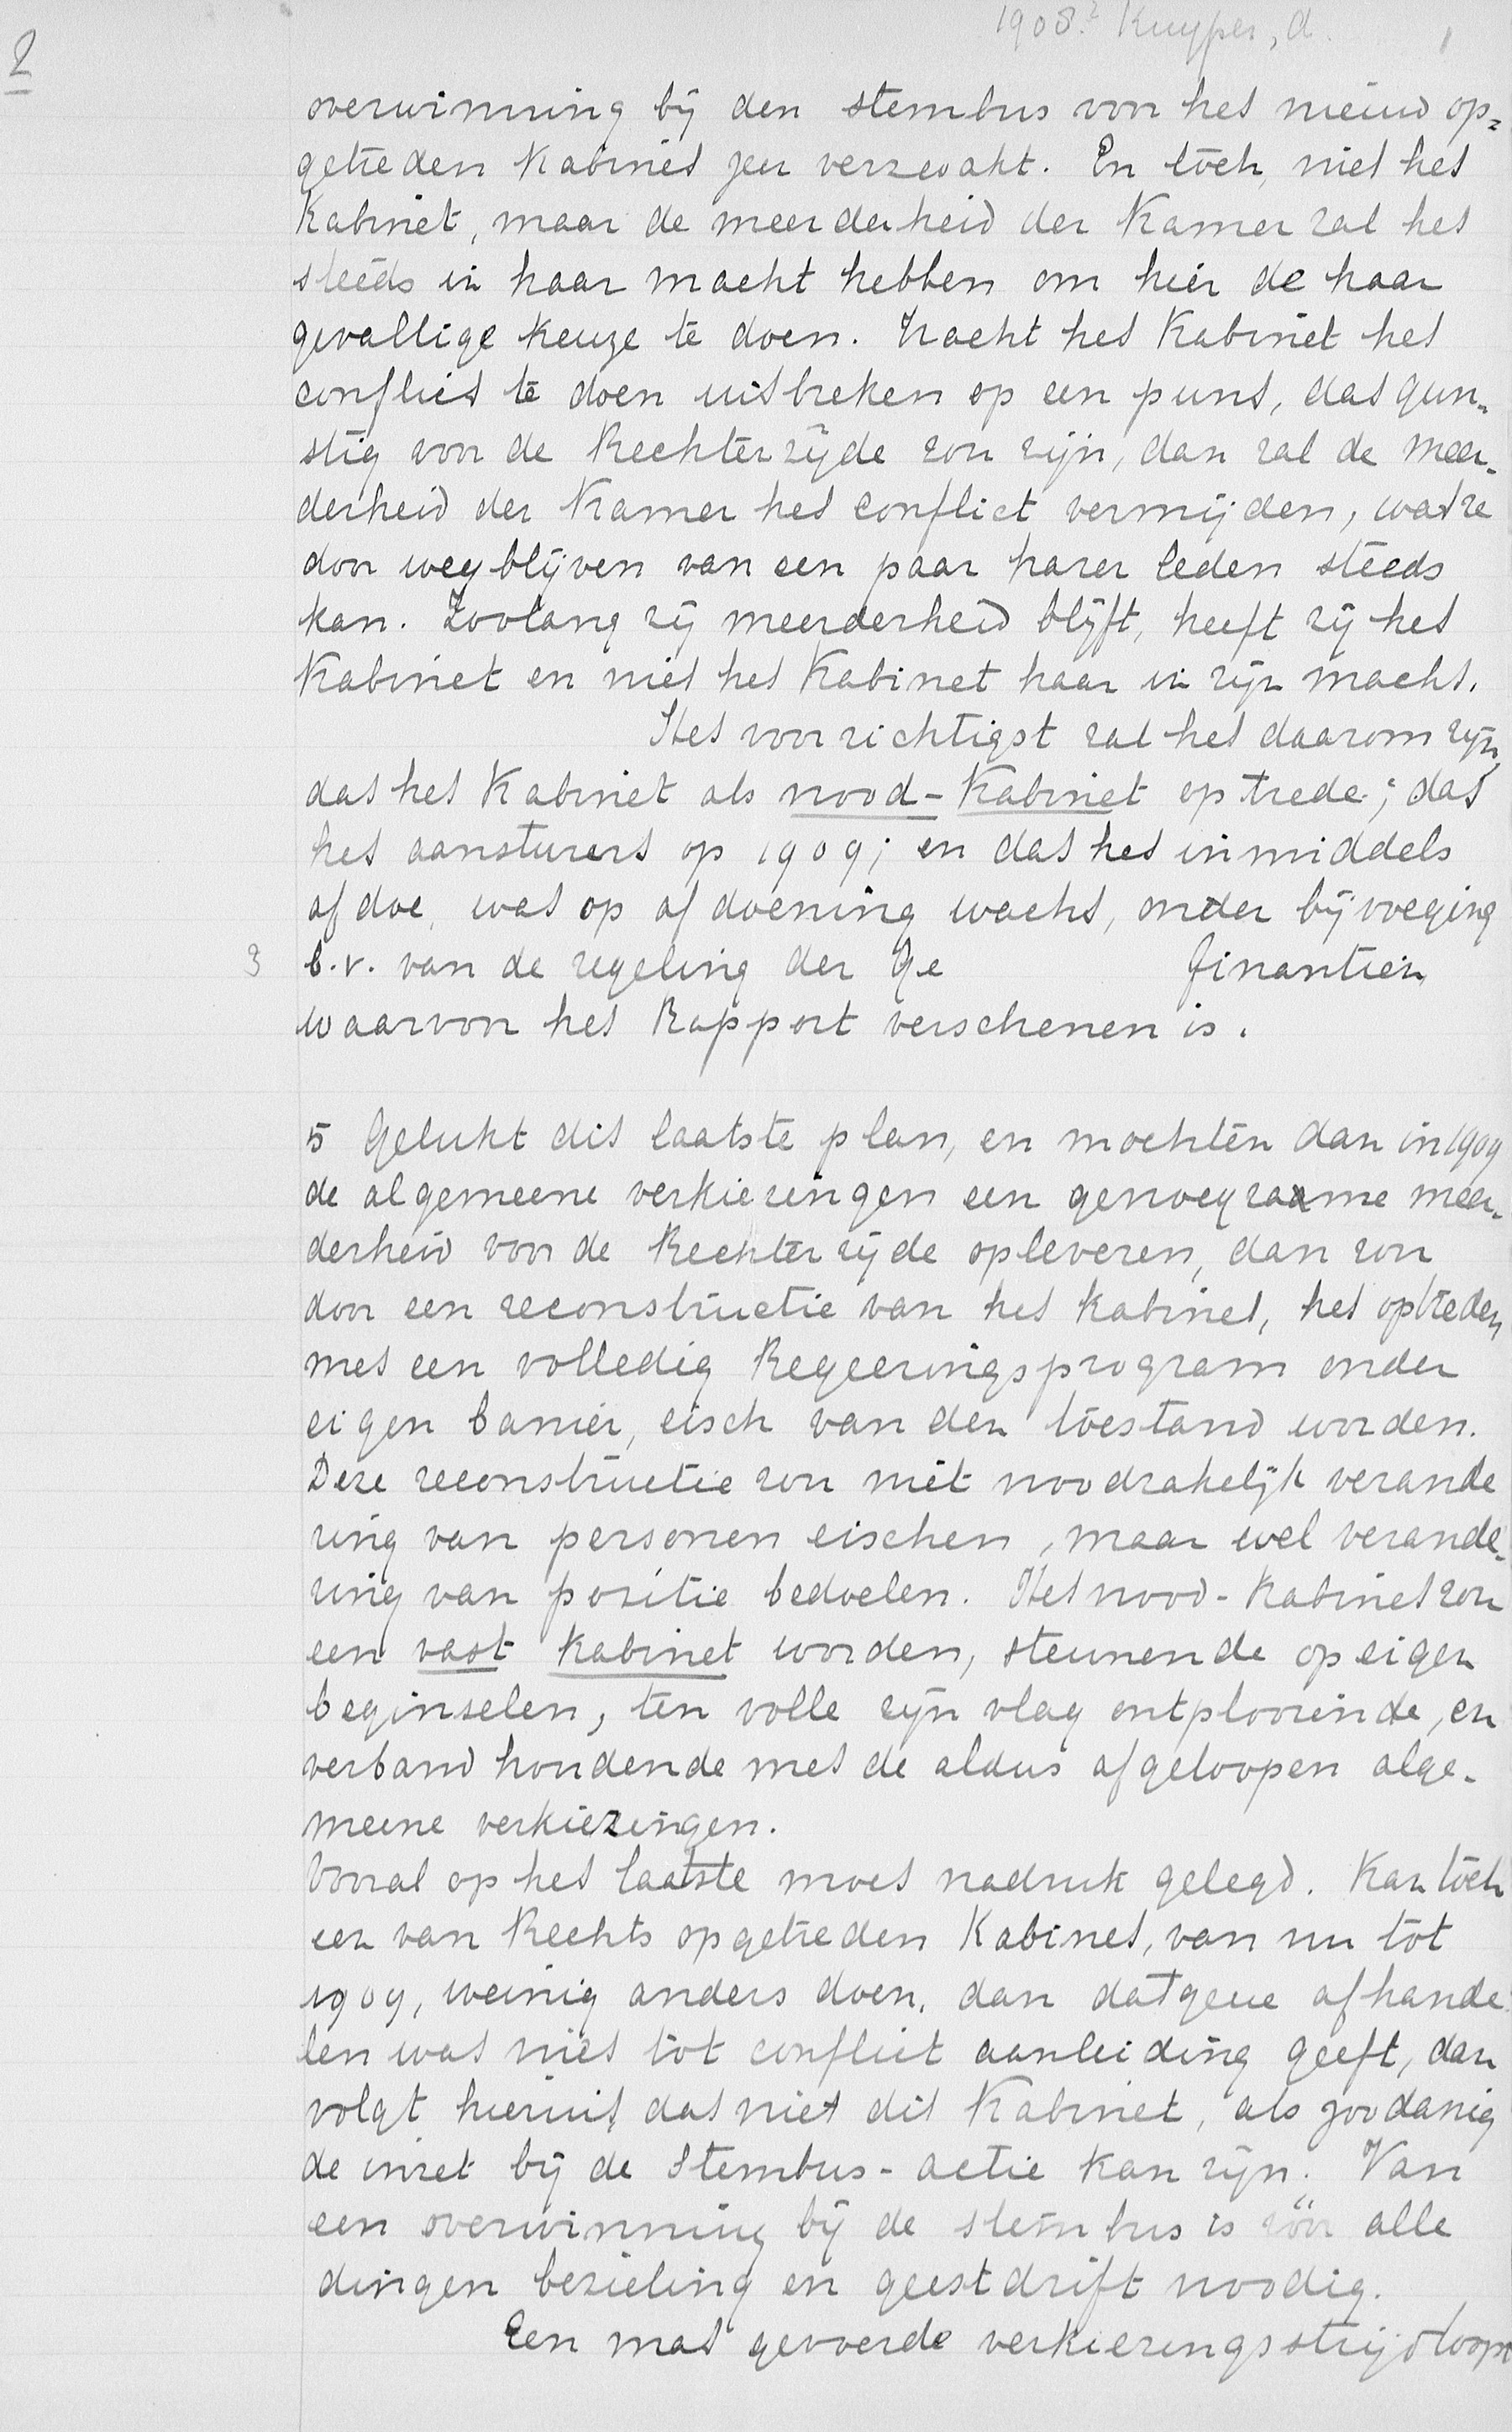 1908? Kuyper, A. 1
2
overwinning bij den stembus voor het nieuw op=
getreden Kabinet zeer verzwakt. En toch, niet het
Kabinet, maar de meerderheid der Kamer zal het
steeds in haar macht hebben om hier de haar
gevallige keuze te doen. Tracht het Kabinet het
conflict te doen uitbreken op een punt, dat gun-
stig voor de Rechterzijde zou zijn, dan zal de meer-
derheid der Kamer het conflict vermijden, wat ze
door wegblijven van een paar harer leden steeds
kan. Zoolang zij meerderheid blijft, heeft zij het
Kabinet en niet het Kabinet haar in zijn macht.
Het voorzichtigst zal het daarom zijn,
dat het Kabinet als nood-Kabinet optrede; dat
het aansturers op 1909; en dat het inmiddels
afdoe, wat op afdoening wacht, onder bijvoeging
3 b.v. van de regeling der Ge finantien,
waarvoor het Rapport verschenen is.
5 Gelukt dit laatste plan, en mochten dan in 1909
de algemeene verkiezingen een genoegzaame meer-
derheid voor de Rechterzijde opleveren, dan zou
door een reconstructie van het kabinet, het optreden
met een volledig Regeeringsprogram onder
eigen banier, eisch van den toestand worden.
Deze reconstructie zou niet noodzakelijk verande
ring van personen eischen, maar wel verande-
ring van positie bedoelen. Het nood-Kabinet zou
een vast Kabinet worden, steunende op eigen
beginselen, ten volle zijn vlag ontplooiende, en
verband houdende met de aldus afgeloopen alge-
meene verkiezingen.
Vooral op het laatste moet nadruk gelegd. Kan toch
een van Rechts opgetreden Kabinet, van nu tot
1909, weinig anders doen, dan datgene afhande
len wat niet tot conflict aanleiding geeft, dan
volgt hieruit, dat niet dit Kabinet, als zoodanig
de inzet bij de Stembus-actie kan zijn. Van
een overwinning bij de stembus is vóór alle
dingen bezieling en geestdrift noodig.
Een mat gevoerde verkiezingsstrijd loopt